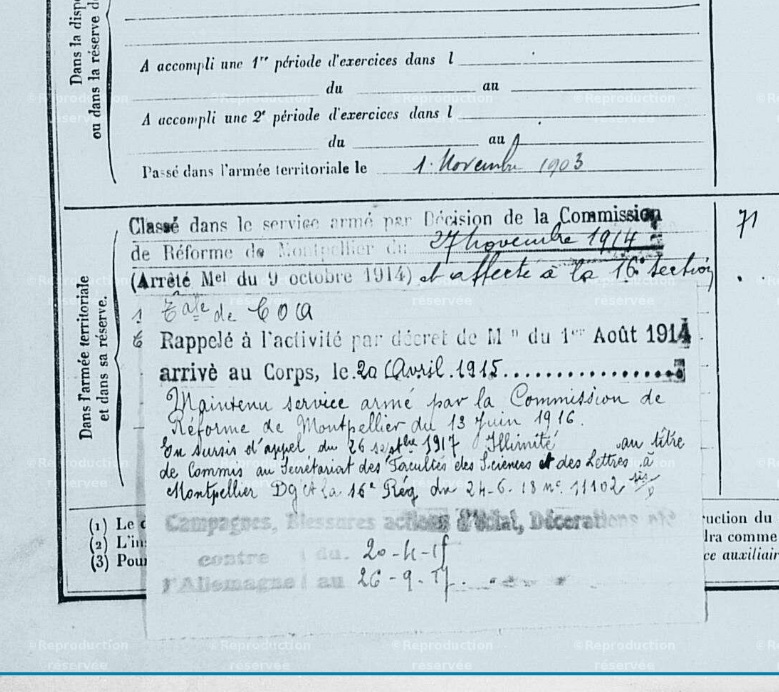 Dans la disp
ou dans la réserve d
A accompli une 1re période d'exercices dans l
du au
A accompli une 2e période d'exercices dans l
du au
Passé dans l'armée territoriale le 1. Novembre 1903
Dans l'armée territoriale
et dans sa réserve.
Classé dans le service armé par Décision de la Commission
de Réforme de Montpellier du 27 novembre 1914
(Arrêté Mel du 9 octobre 1914) et affecté à la 16e section
de COA
Rappelé à l'activité par décret de Mon du 1er Août 1914
arrivé au Corps, le 20 Avril 1915
Maintenu service armé par la Commission de
Réforme de Montpellier du 13 Juin 1916.
En sursis d'appel du 26 septbre 1917 Illimité au titre
de Commis au Secrétariat des Facultés des Sciences et des Lettres à
Montpellier la 16e Rég du 24-6-18 no 11102
Campagnes, Blessures actions d'éclat, Décorations etc
contre du 20-4-15
l'Allemagne au 26-9-17
71
(1) Le
(2) L'in
(3) Pour
uction du
dra comme
ce auxiliair
©Reproduction
réservée